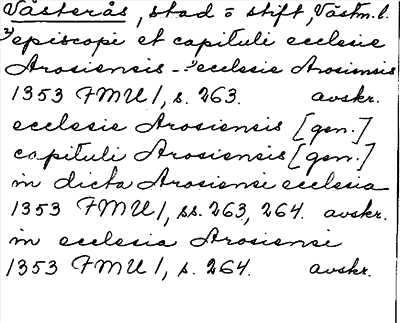 Västerås, stad o stift, Västm. l.
episcopi et capituli ecclesie
Arosiensis - ecclesie Arosiensis
1353 FMU 1, s. 263. avskr.
ecclesie Arosiensis [gen.]
capituli Arosiensis [gen.]
in dicta Arosiensi ecclesia
1353 FMU 1, ss. 263, 264. avskr.
in ecclesia Arosiensi
1353 FMU 1, s. 264. avskr.